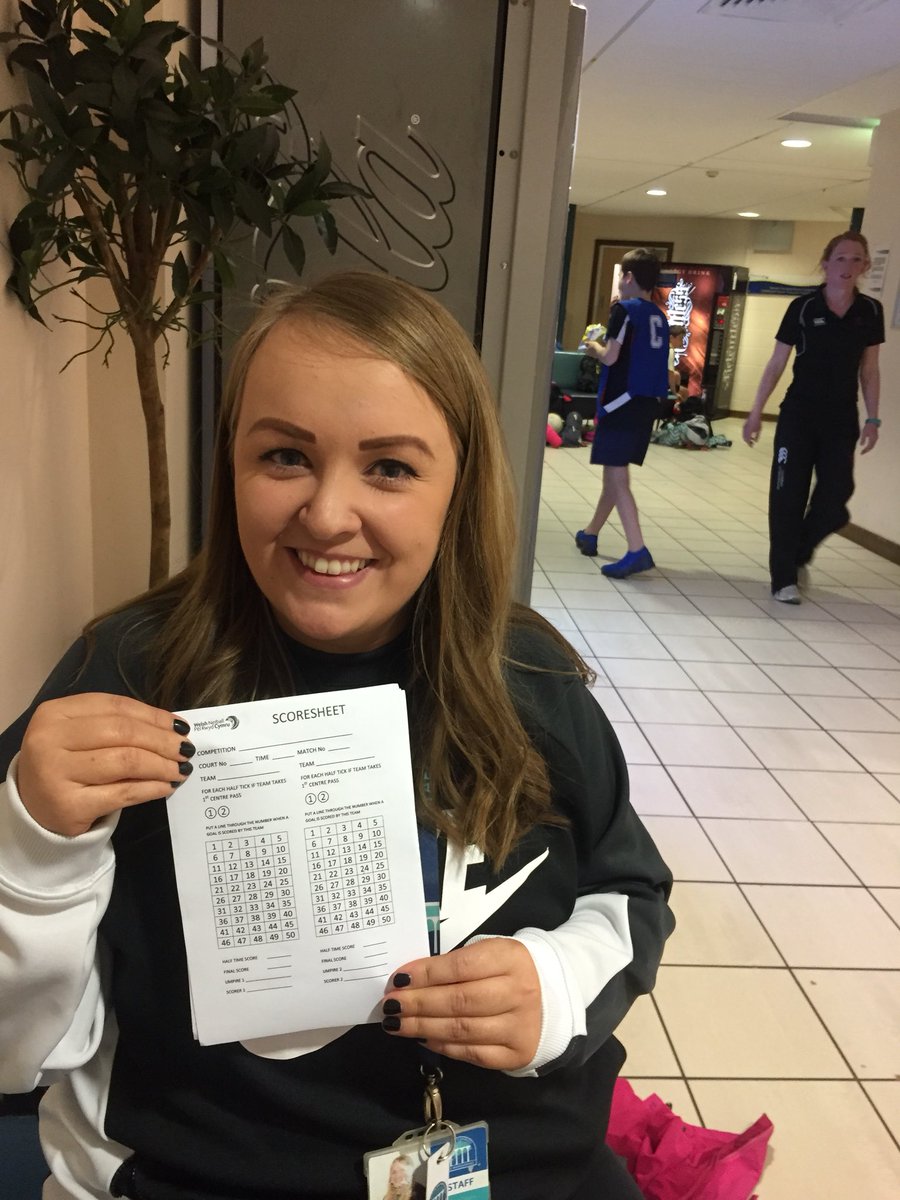 Welsh Netball
Pêl Rwyd Cymru
SCORESHEET
COMPETITION
COURT No TIME MATCH No
TEAM TEAM
FOR EACH HALF TICK IF TEAM TAKES
1ST CENTRE PASS
1 2
PUT A LINE THROUGH THE NUMBER WHEN A
GOAL IS SCORED BY THIS TEAM
1 2 3 4 5
6 7 8 9 10
11 12 13 14 15
16 17 18 19 20
21 22 23 24 25
26 27 28 29 30
31 32 33 34 35
36 37 38 39 40
41 42 43 44 45
46 47 48 49 50
HALF TIME SCORE
FINAL SCORE
UMPIRE 1
SCORER 1
FOR EACH HALF TICK IF TEAM TAKES
1ST CENTRE PASS
1 2
PUT A LINE THROUGH THE NUMBER WHEN A
GOAL IS SCORED BY THIS TEAM
1 2 3 4 5
6 7 8 9 10
11 12 13 14 15
16 17 18 19 20
21 22 23 24 25
26 27 28 29 30
31 32 33 34 35
36 37 38 39 40
41 42 43 44 45
46 47 48 49 50
HALF TIME SCORE
FINAL SCORE
UMPIRE 2
SCORER 2
C
STAFF